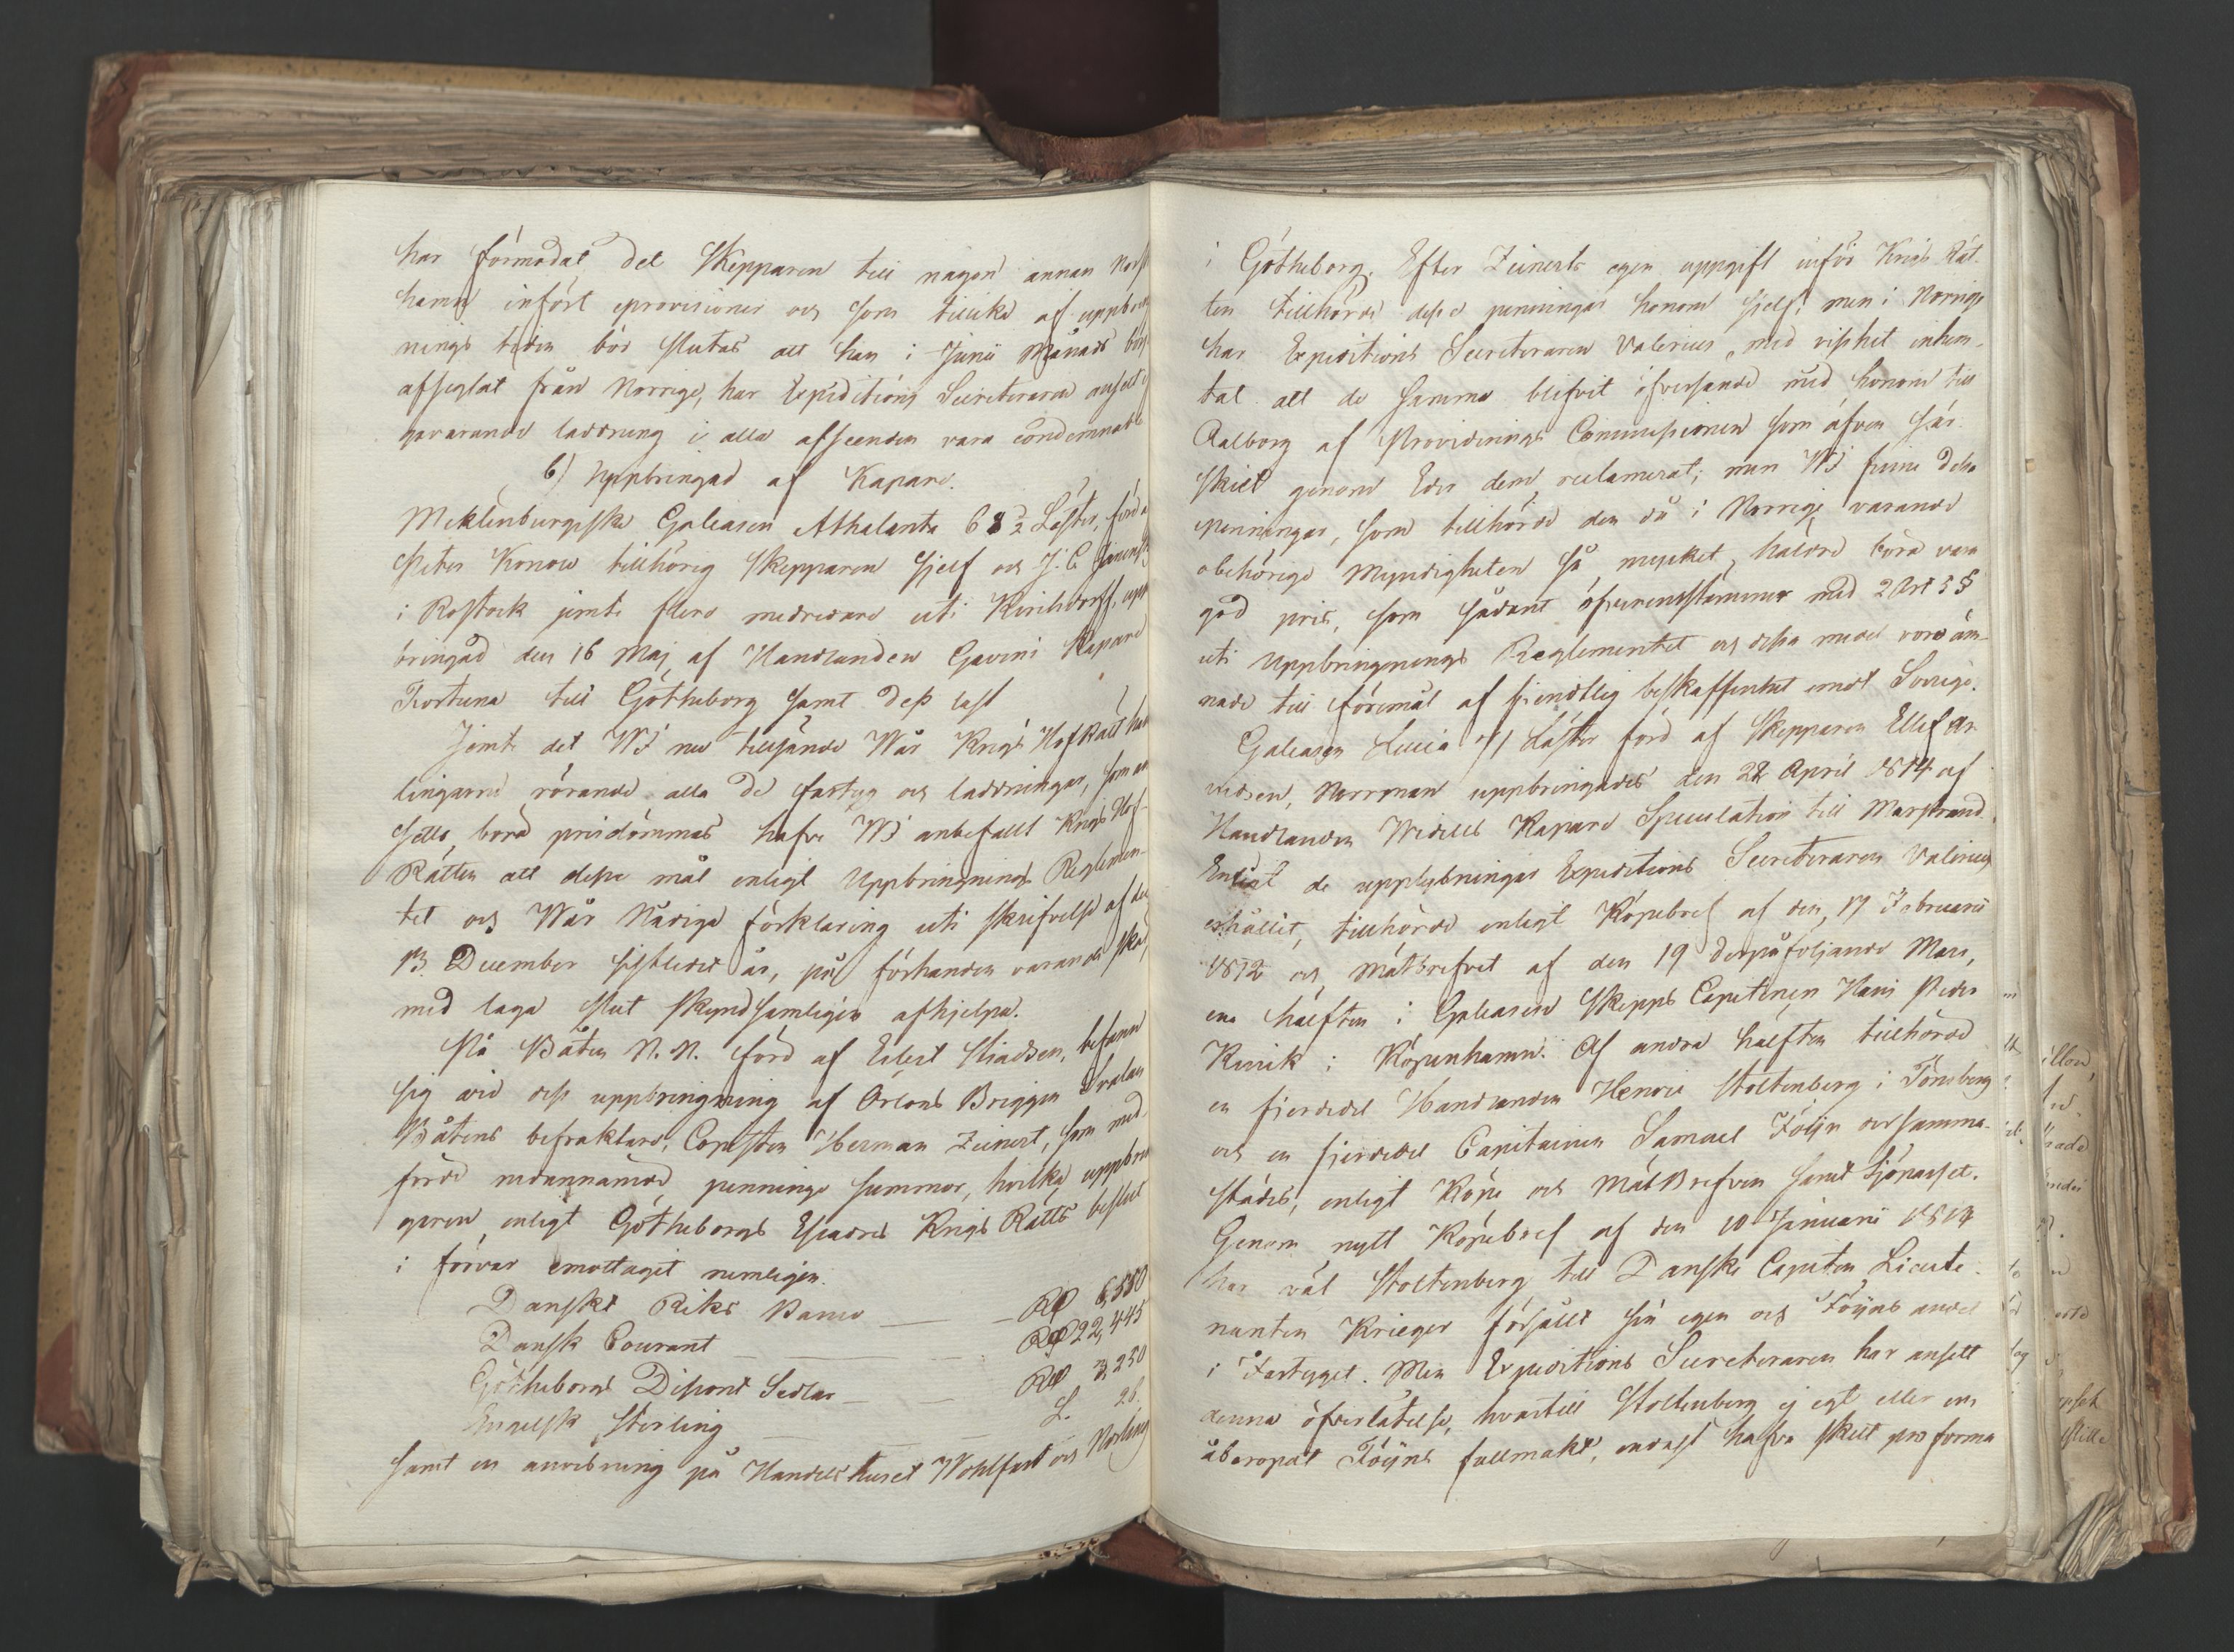 har förmodat det Skepparen till någon annan Norsk
hamn infört provisioner och som tillika af uppbring
nings tiden bör slutas att han i Junii Månads början
afseglat från Norrige, har Expeditions Secreteraren ansett
varande laddning i alla afseenden vara condemnable
6) Uppbringad af Kapare.
Meklenburgiska Galeasen Athalanta 68 1/2 Läster, förd af
Peter Konow tillhörig Skepparen sjelf och J. C.
i Rostock jemte flere medredare uti Kirchdorff, upp
bringad den 16 Maj af Handlanden Gavins Kapare
Fortuna till Götheborg samt dess last
Jemte det Wi nu tillsände Wår Krigs Hof Rätt hand
lingarne rörande alla de fartyg och laddningar, som an
setts böra prisdömmas hafve Wi anbefallt Krigs Hof-
Rätten att desse mål enligt Uppbringnings Reglemen-
tet och Wår Nådiga förklaring uti skrifvelse af den
13 December sistledit år, på förhanden varande skäl,
med laga slut skyndsamligen afhjelpa.
På Båten N. N. förd af Eilert Stiadsen, befann
sig vid dess uppbringning af Örlogs Briggen Svalan
Båtens befraktare, Copisten Herman Zeinert, som med-
förde nedannämnde penninge summor, hvilka uppbrin
garen enligt Götheborgs Escadres Krigs Rätts beslut
i förvar emottagit nemligen.
Danskt Riks Banco — — Rd 6,550
Dansk Courant — — Rd 22,445
Götheborgs Discont Sedlar — — Rd 3,250
Engelsk Sterling — — L. 26.
samt en anvisning på Handelshuset Wohlfart och Norling
i Götheborg. Efter Zeinerts egen uppgift inför Krigs Rät-
ten tillhörde desse penningar honom sjelf; men i Norrige
har Expeditions Secreteraren Valerius med visshet inhem-
tat att de samma blifvit öfversände med honom till
Aalborg af Provideerings Commissionen som äfven sär-
skilt genom Eder dem reclamerat; men Wi finne dessa
penningar, som tillhörde den då i Norrige varande
obehörige Myndigheten så mycket hälldre böra vara
god pris, som sådant öfverensstämmer med 2 Art 5 §
uti Uppbringnings Reglementet och dessa medel voro äm-
nade till föremål af fiendtlig beskaffenhet emot Sverige.
Galeasen Lucia 71 Läster förd af Skepparen Ellef An-
undsen, Norrman uppbringades den 22 April 1814 af
Handlanden Widells Kapare Speculation till Marstrand.
Enligt de upplysningar Expeditions Secreteraren Valerius
erhållit, tillhörde enligt Köpebref af den 17 Februarii
1812 och Mätbrefvet af den 19 derpåföljande Mars,
ena hälften i Galeasen Skepps Capitenen Hans Peder
Kinik i Köpenhamn. Af andra hälften tillhörde
en fjerdedel Handlanden Henric Stoltenberg i Tönsberg
och en fjerdedel Capitainen Samuel Föijn dersamma-
städes, enligt Köpe och Mät Brefven samt Sjöpasset.
Genom nytt Köpebref af den 10 Januarii 1814
har väl Stoltenberg till Danske Capiten Lieute-
nanten Krieger försållt sin egen och Föijns andel
i Fartyget. Men Expeditions Secreteraren har ansett
denna öfverlåtelse, hvartill Stoltenberg ej egt eller ens
åberopat Föijns fullmakt, endast hafva skett pro forma